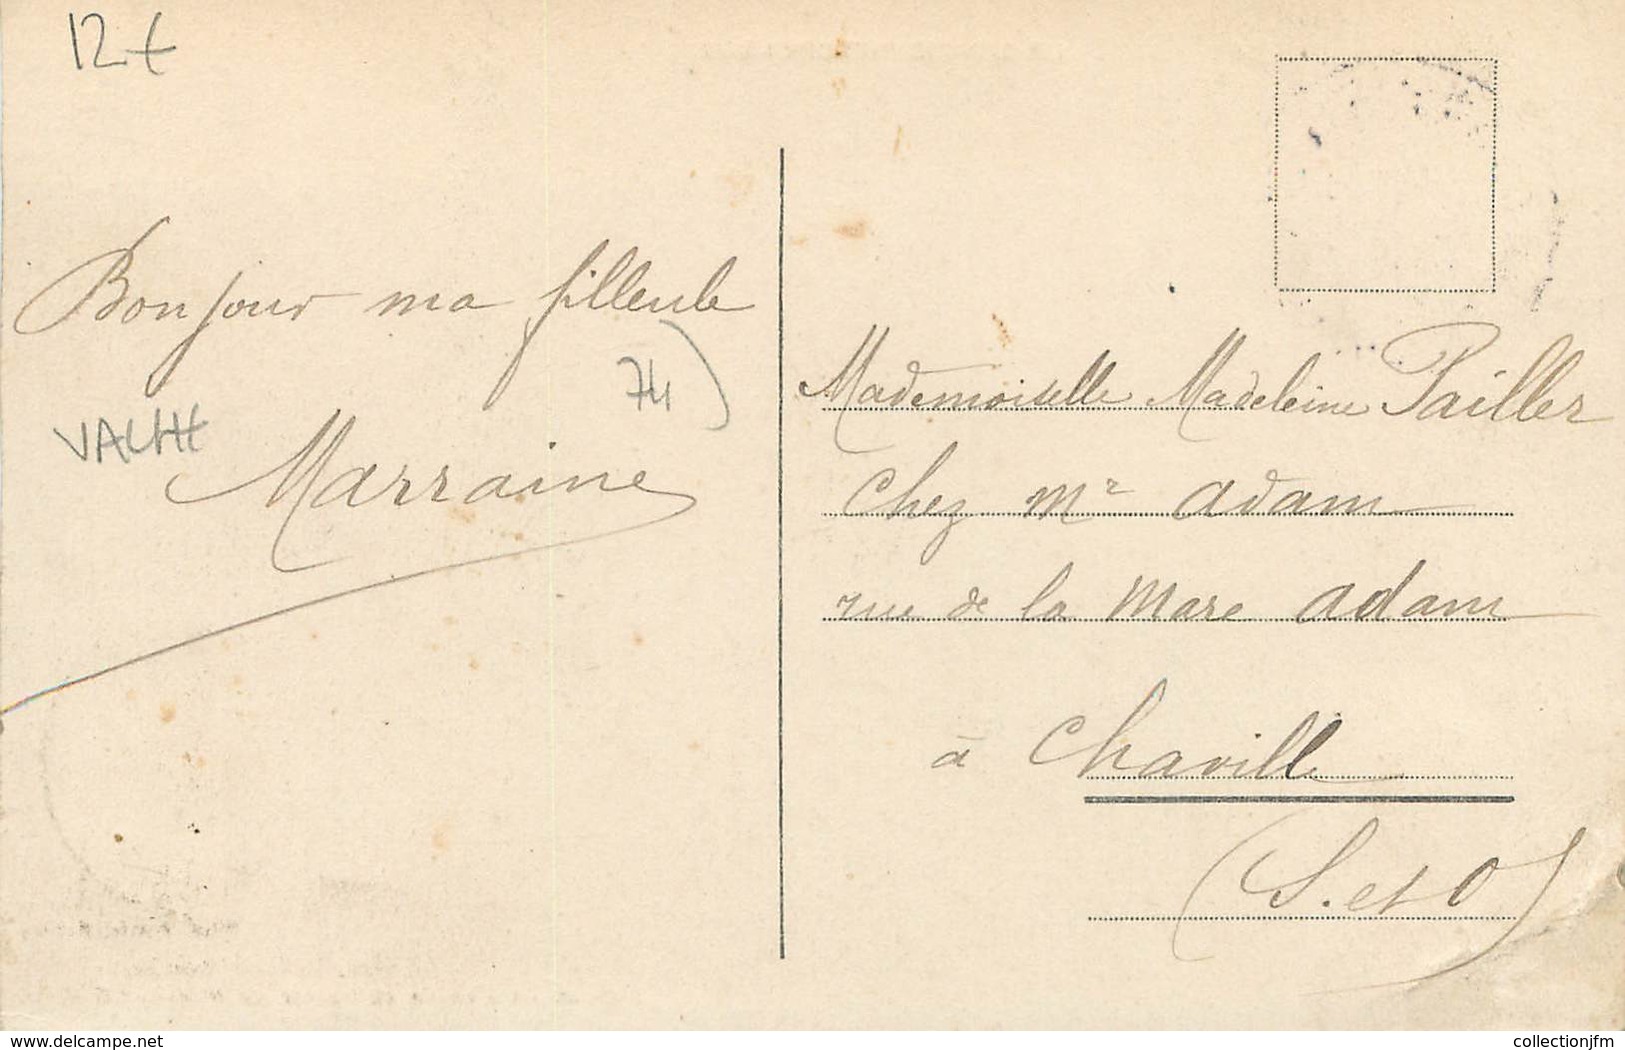 12€
Bonjour ma filleule
74)
Marraine
Mademoiselle Madeleine Pailler
Chez Mr Adam
rue de la Mare Adam
à Chaville
(S. et O)
www.delcampe.net
collectionjfm